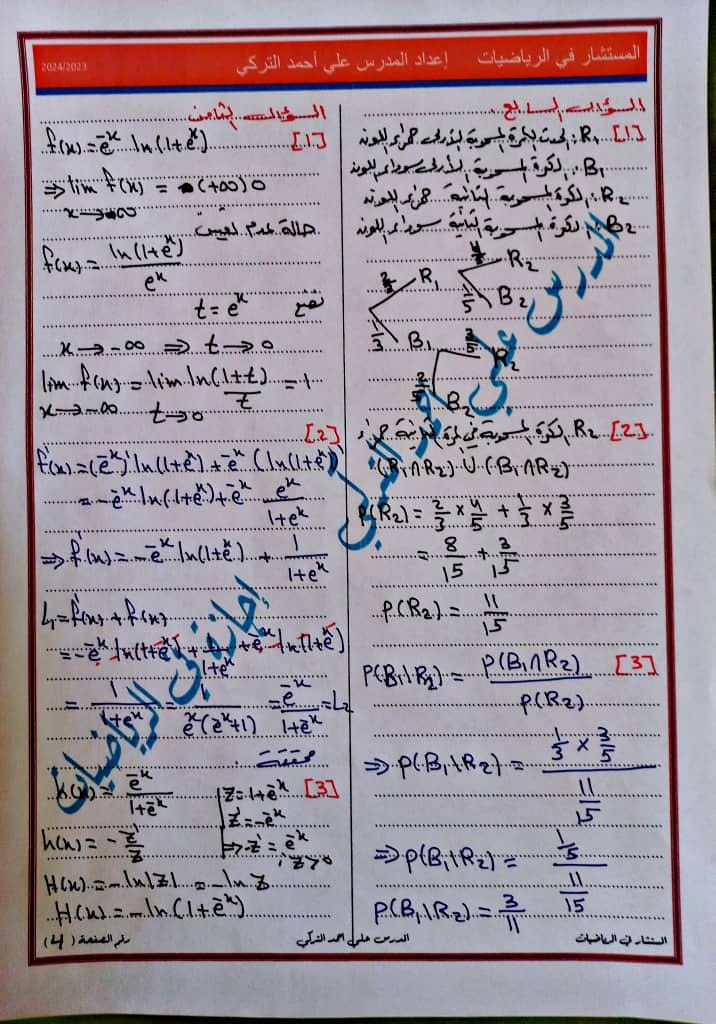 المستشار في الرياضيات إعداد المدرس علي أحمد التركي 2024/2023
السؤال السابع
[1] R₁: الكرة المسحوبة الأولى حمراء اللون
B₁: الكرة المسحوبة الأولى سوداء اللون
R₂: الكرة المسحوبة الثانية حمراء اللون
B₂: الكرة المسحوبة الثانية سوداء اللون
2/3 R₁ 4/5 R₂
1/5 B₂
1/3 B₁ 3/5 R₂
2/5 B₂
[2] R₂ الكرة المسحوبة في المرة الثانية حمراء
(R₁∩R₂) ∪ (B₁∩R₂)
P(R₂) = 2/3 × 4/5 + 1/3 × 3/5
= 8/15 + 3/15
P(R₂) = 11/15
[3] P(B₁|R₂) = P(B₁∩R₂) / P(R₂)
⇒ P(B₁|R₂) = (1/3 × 3/5) / (11/15)
⇒ P(B₁|R₂) = (1/5) / (11/15)
P(B₁|R₂) = 3/11
السؤال الثامن
[1] f(x) = e⁻ˣ ln(1+eˣ)
⇒ lim f(x) = (+∞) 0
x → -∞
حالة عدم تعيين
f(x) = ln(1+eˣ) / eˣ
نضع t = eˣ
x → -∞ ⇒ t → 0
lim f(x) = lim ln(1+t)/t = 1
x → -∞ t → 0
[2]
f'(x) = (e⁻ˣ)' ln(1+eˣ) + e⁻ˣ (ln(1+eˣ))'
= -e⁻ˣ ln(1+eˣ) + e⁻ˣ eˣ/(1+eˣ)
⇒ f'(x) = -e⁻ˣ ln(1+eˣ) + 1/(1+eˣ)
L₁ = f'(x) + f(x)
= -e⁻ˣ ln(1+eˣ) + 1/(1+eˣ) + e⁻ˣ ln(1+eˣ)
= 1/(1+eˣ) = 1/(eˣ(e⁻ˣ+1)) = e⁻ˣ/(1+e⁻ˣ) = L₂
محققة
[3] h(x) = e⁻ˣ/(1+e⁻ˣ) z = 1+e⁻ˣ
z' = -e⁻ˣ
h(x) = -z'/z ⇒ -z' = e⁻ˣ
, z > 0
H(x) = -ln|z| = -ln z
H(x) = -ln(1+e⁻ˣ)
المدرس علي أحمد التركي
إجازة في الرياضيات
المستشار في الرياضيات المدرس علي احمد التركي رقم الصفحة (4)